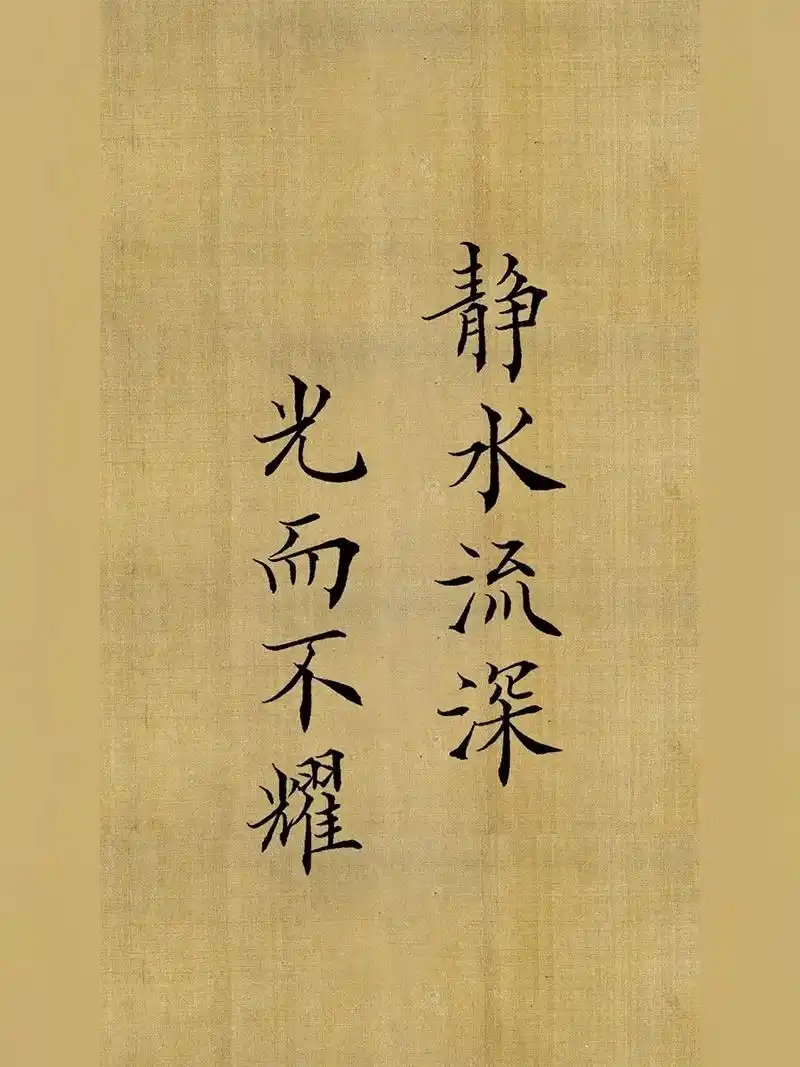 静水流深
光而不耀